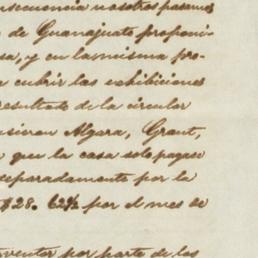 nsecuencia nosotros pasamos
de Guanajuato proponi-
sa, y en la misma pro-
a cubrir las exhibiciones
resultado de la circular
usieran Algara, Graut,
que la casa solo pagase
separadamente por la
$28. 62½ por el mes de
ventor por parte de los